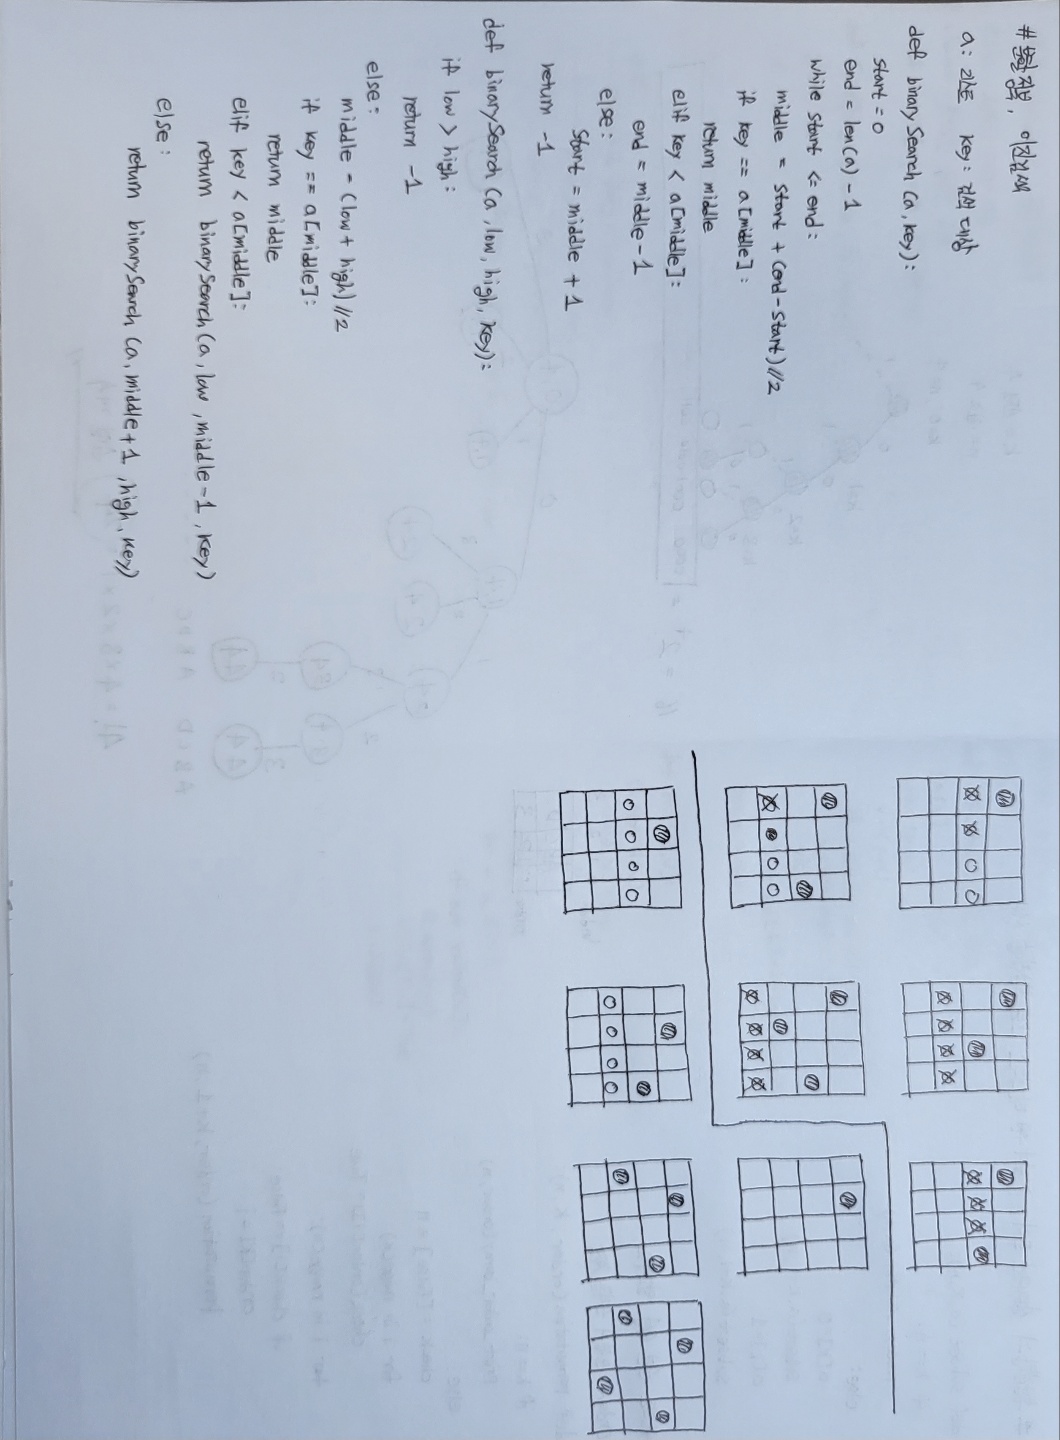 # 분할정복, 이진검색
a: 리스트 key: 검색 대상
def binarySearch (a, key):
start = 0
end = len(a) - 1
while start <= end:
middle = start + (end - start) // 2
if key == a[middle]:
return middle
elif key < a[middle]:
end = middle - 1
else:
start = middle + 1
return -1
def binarySearch (a, low, high, key):
if low > high:
return -1
else:
middle = (low + high) // 2
if key == a[middle]:
return middle
elif key < a[middle]:
return binarySearch (a, low, middle-1, key)
else:
return binarySearch (a, middle+1, high, key)